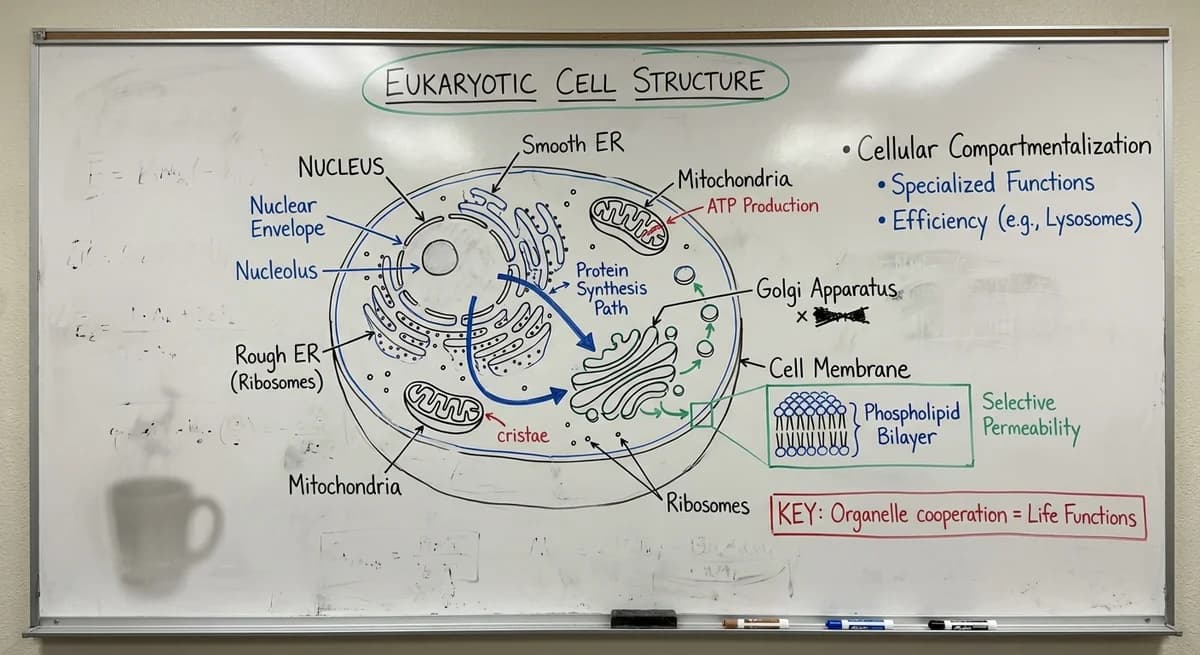 EUKARYOTIC CELL STRUCTURE
Smooth ER
NUCLEUS
Mitochondria
ATP Production
Nuclear
Envelope
Nucleolus
Protein
Synthesis
Path
Golgi Apparatus
x
Rough ER
(Ribosomes)
Cell Membrane
Phospholipid
Bilayer
Selective
Permeability
cristae
Mitochondria
Ribosomes
• Cellular Compartmentalization
• Specialized Functions
• Efficiency (e.g., Lysosomes)
KEY: Organelle cooperation = Life Functions